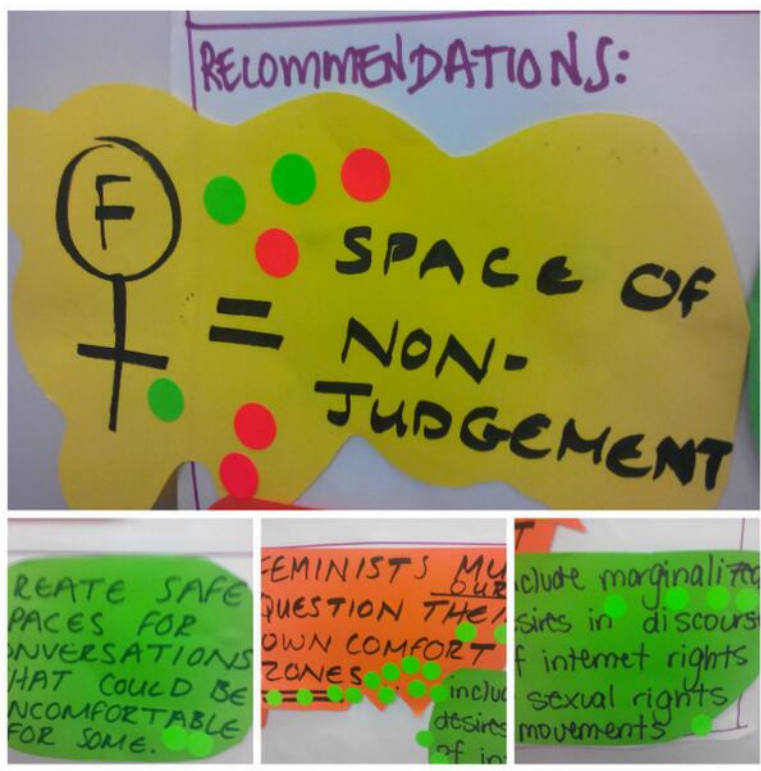 RECOMMENDATIONS:
F
= SPACE OF
NON-
JUDGEMENT
REATE SAFE
PACES FOR
NVERSATIONS
HAT COULD BE
NCOMFORTABLE
FOR SOME.
FEMINISTS MU
OUR
QUESTION THEI
OWN COMFORT
ZONES
inclu
desires
of in
T
clude marginalized
sires in discours
f internet rights
sexual rights
movements